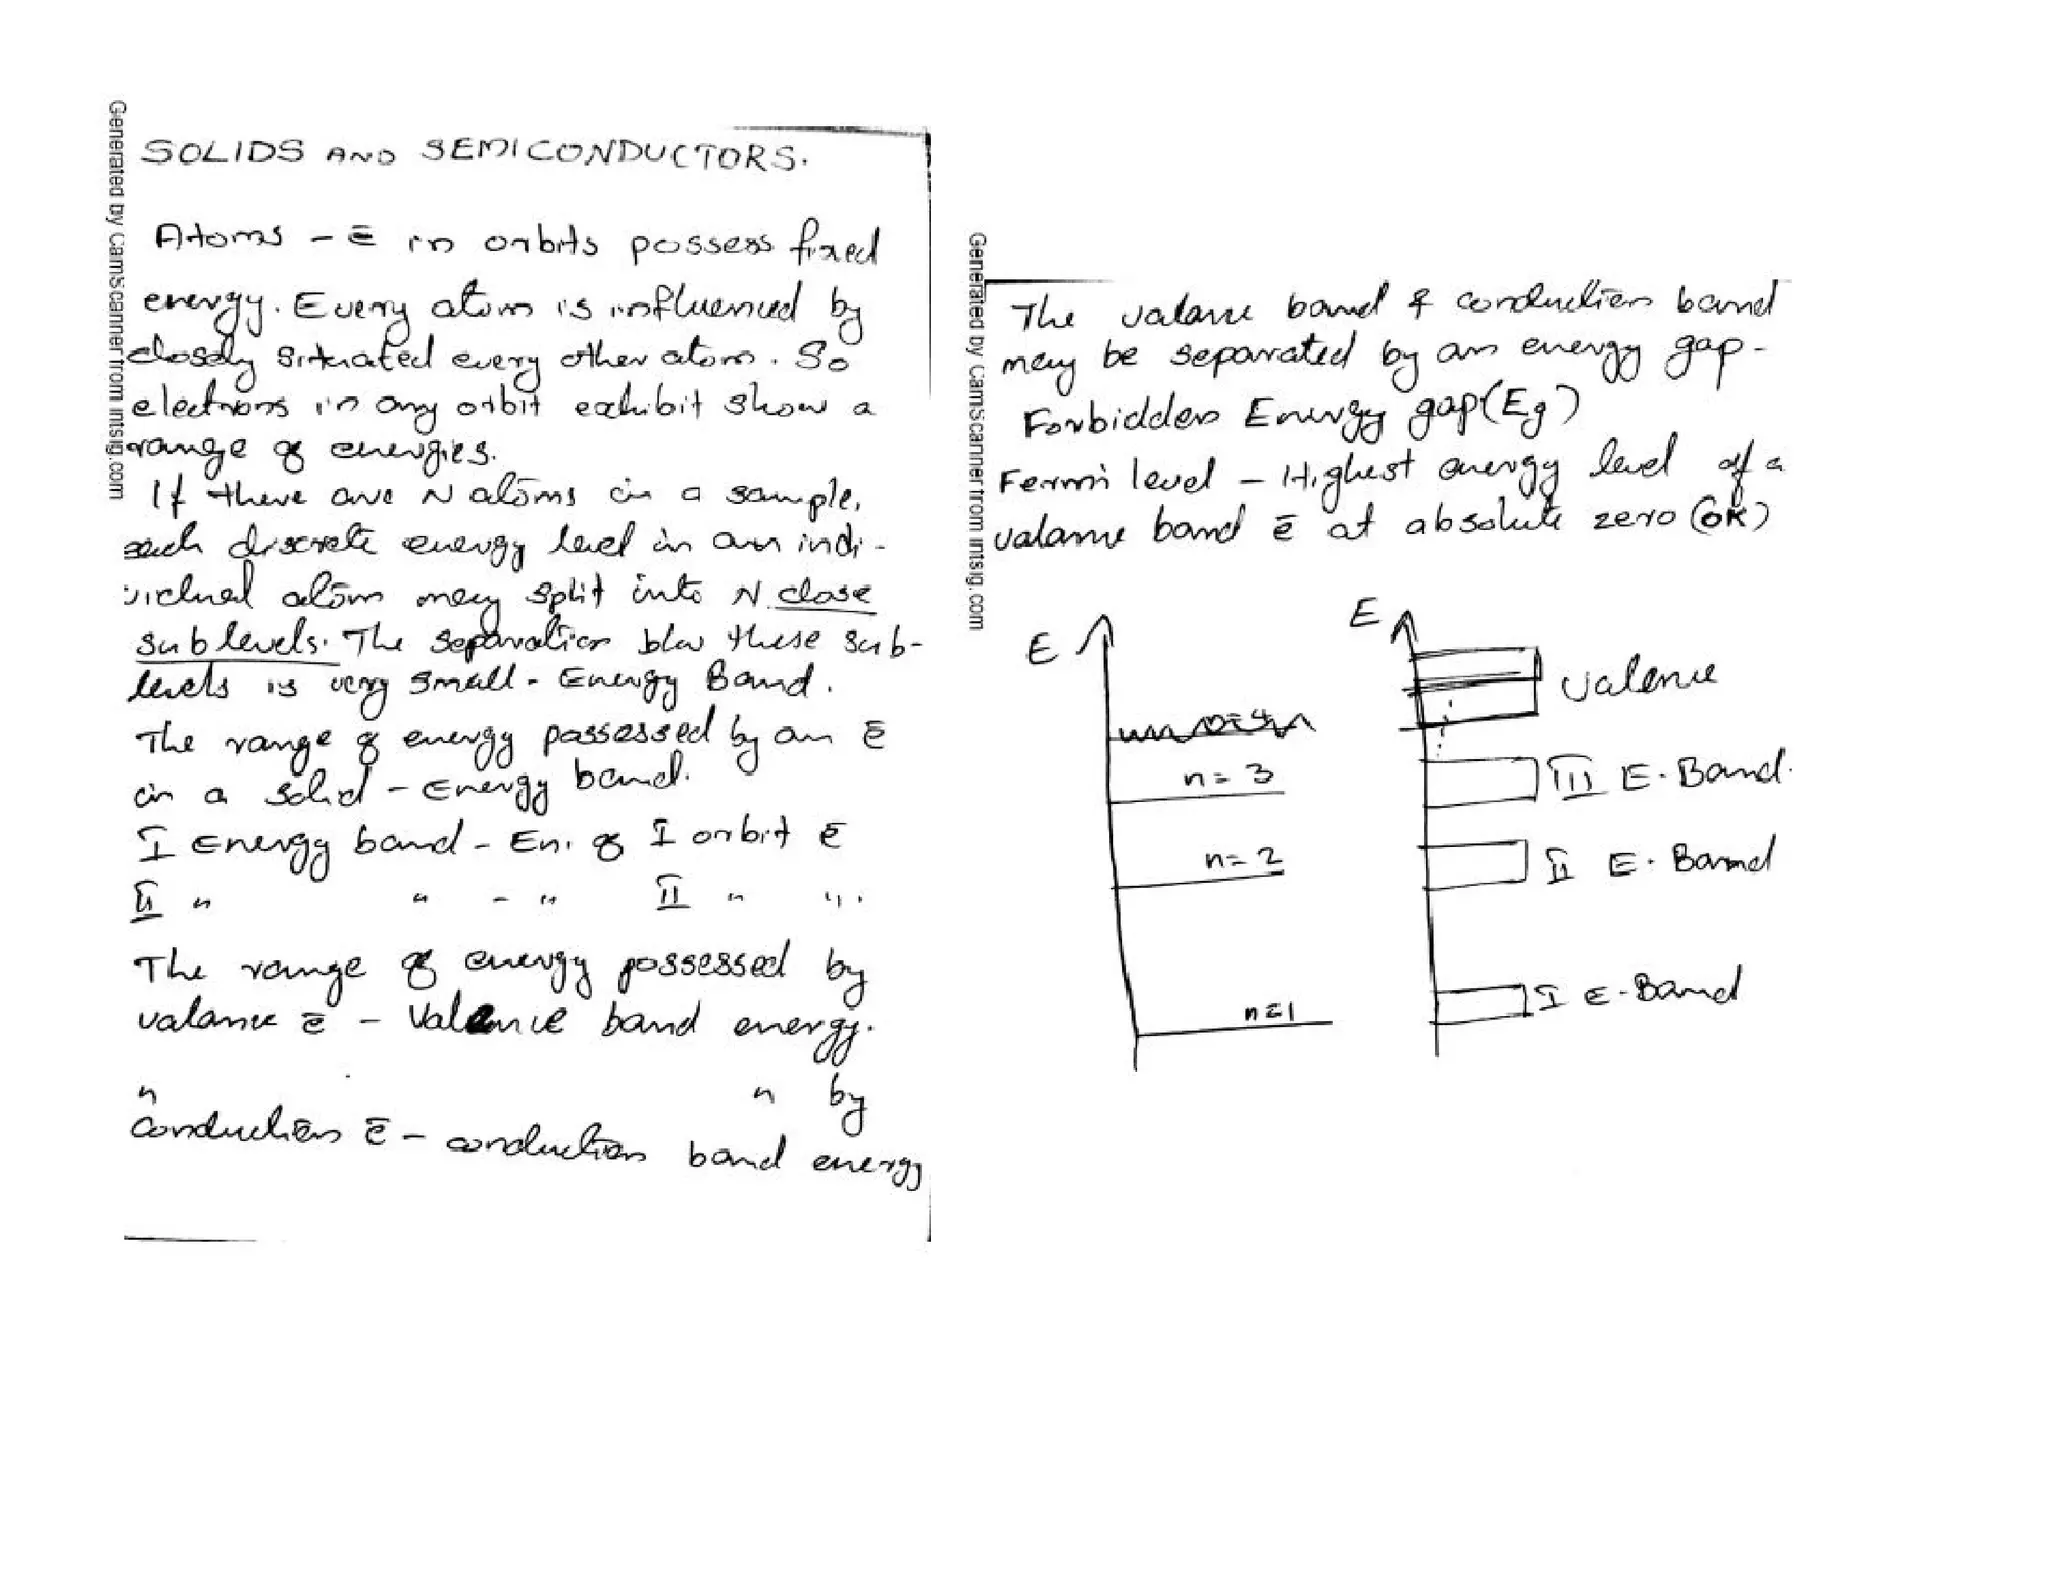 Generated by CamScanner from intsig.com
SOLIDS AND SEMICONDUCTORS.
Atoms - ē in orbits possess fixed
energy. Every atom is influenced by
closely situated every other atom. So
electrons in any orbit exhibit show a
range of energies.
If there are N atoms in a sample,
each discrete energy level in an indi-
vidual atom may split into N close
sub levels. The separation b/w these sub-
levels is very small - Energy Band.
The range of energy possessed by an ē
in a solid - Energy band.
I Energy band - En. of I orbit ē
II " " - " II " ".
The range of energy possessed by
valance ē - Valence band energy.
" " by
conduction ē - conduction band energy
Generated by CamScanner from intsig.com
The valance band & conduction band
may be separated by an energy gap -
Forbidden Energy gap (Eg)
Fermi level - Highest energy level of a
valance band ē at absolute zero (0K)
E
n = 3
n = 2
n = 1
E
Valence
III E. Band.
II E. Band
I E - Band